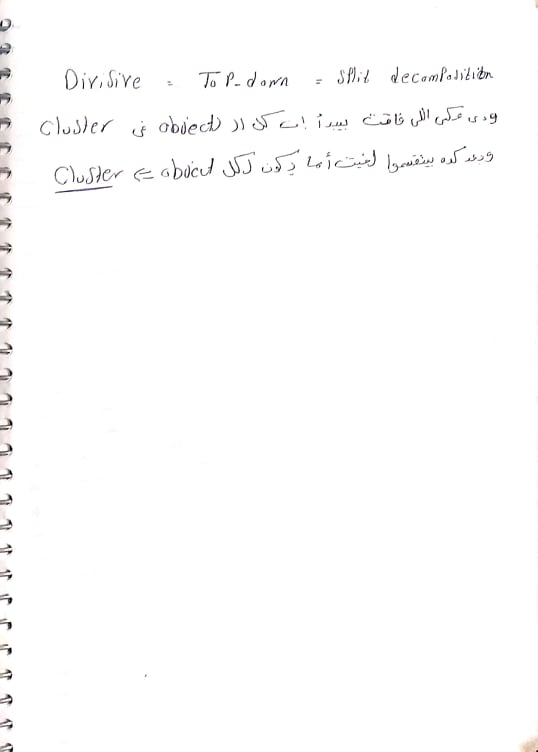 Divisive = Top-down = split decomposition
ودى عكس اللى فاتت بيبدأ إن كل ال objects فى Cluster
وبعد كده بينقسموا لغيت أما يكون لكل object ⇐ Cluster